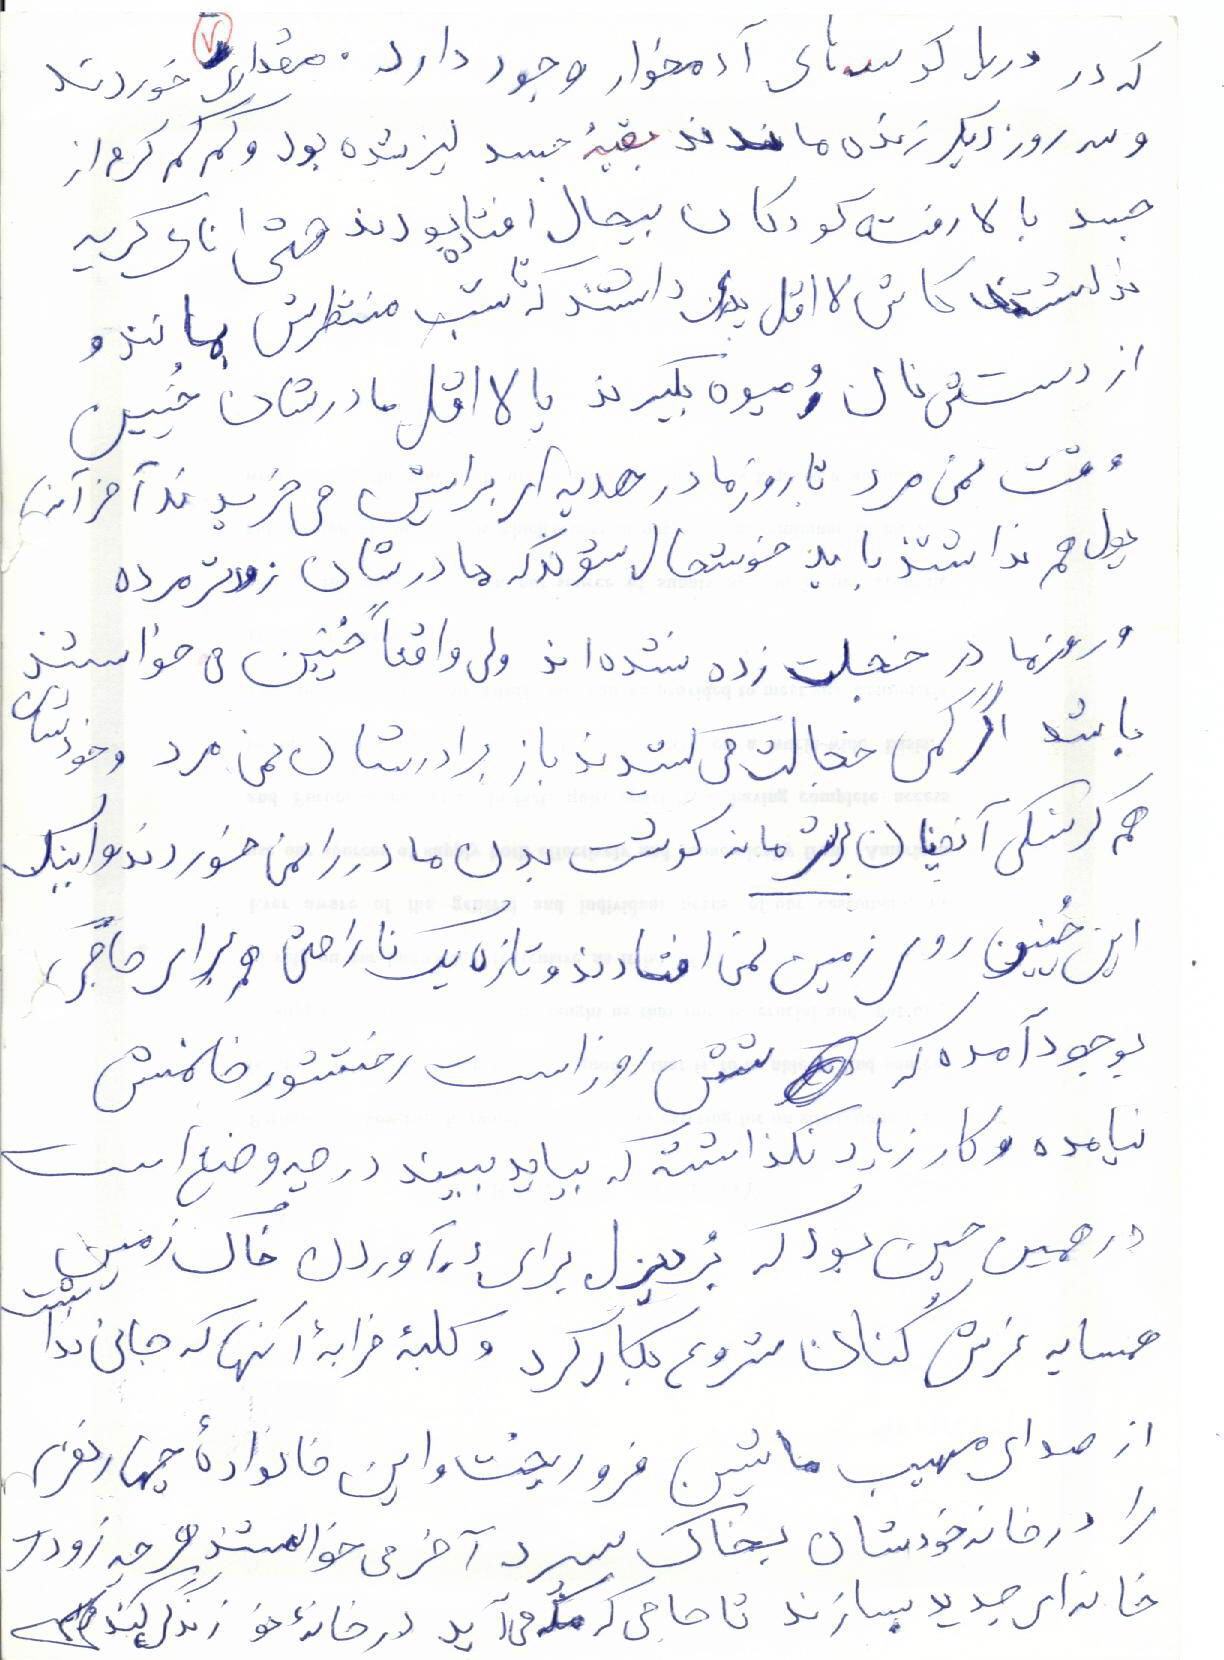 ۷
که در دریا کوسه‌های آدمخوار وجود دارد. مقداری خوردند
و سه روز دیگر زنده ماندند بقیهٔ جسد لیز شده بود و کم کم کرم از
جسد بالا رفته کودکان بیحال افتاده بودند حتی نای گریه
نداشتند کاش لااقل پدری داشتند که تا شب منتظرش بمانند و
از دستش نان و میوه بگیرند یا لااقل مادرشان چُنین
وقت نمی مرد تا روز مادر هدیه ای برایش می خریدند آخر آنها
پول هم نداشتند باید خوشحال شوند که مادرشان زودتر مرده
و روز مادر خجلت زده نشده اند ولی واقعاً چُنین می خواستند
باشد اگر کمی خجالت می کشیدند باز برادرشان نمی مرد و خودشان
هم گرسنگی آنچنان گوشت بدن مادر را نمی خوردند و اینک
این چُنین روی زمین نمی افتادند و تازه یک ناراحتی هم برای حاجی
بوجود آمده که شش روز است رختشور خانمش
نیامده و کار زیاد نگذاشته که بیاید ببیند در چه وضع است
در همین حین بود که بُلدیزل برای در آوردن خاک زمین
همسایه غرش کُنان شروع بکار کرد و کلبهٔ خرابهٔ آنها که جانی نداشت
از صدای مهیب ماشین فرو ریخت و این خانوادهٔ چهار نفری
را در خانه خودشان بخاک سپرد آخر می خواستند هر چه زودتر
خانه ای جدید بسازند تا حاجی که از مکّه می آید در خانهٔ خود زندگی کند